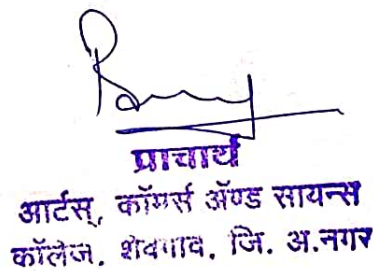 प्राचार्य
आर्टस्, कॉमर्स ॲण्ड सायन्स
कॉलेज, शेवगाव, जि. अ.नगर